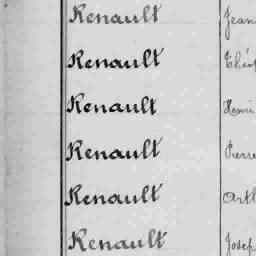 Renault Jean
Renault
Renault Henri
Renault Pierre
Renault
Renault Josep